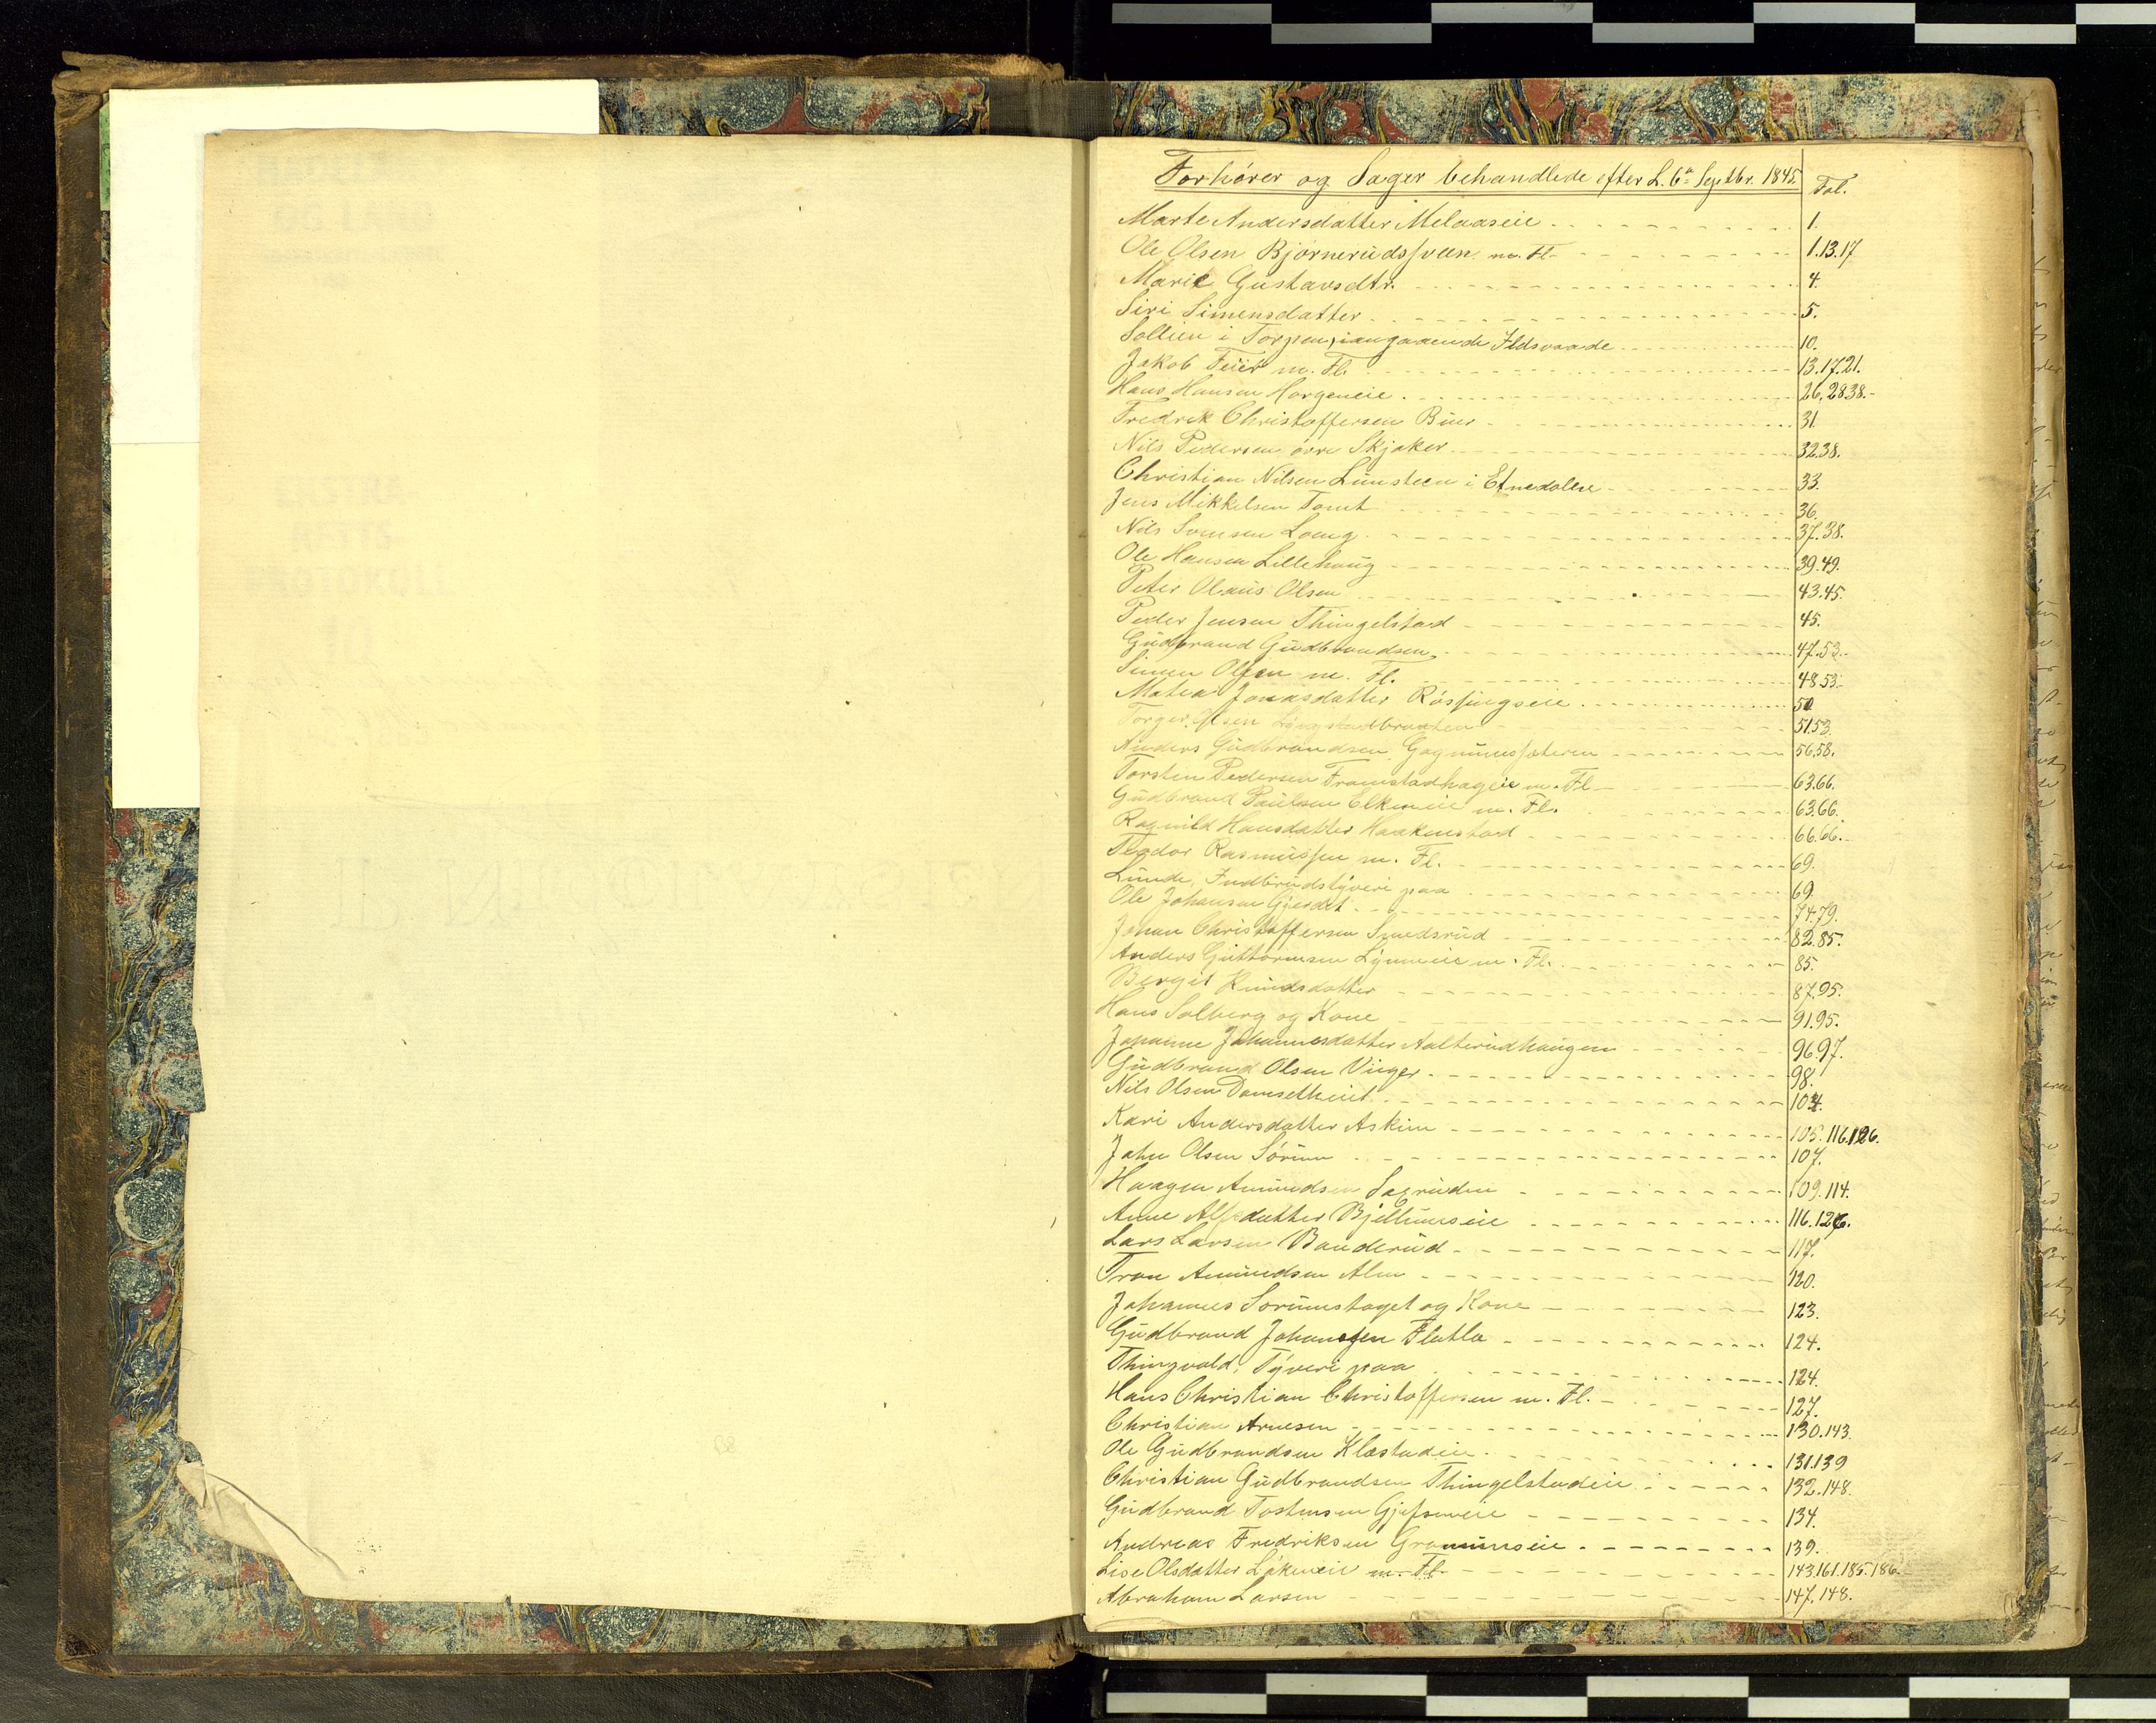 Forhører og Sager behandlede efter L. 6te Septbr. 1845. Fol.
Marte Andersdatter Melaaseie 1.
Ole Olsen Bjørnerudsveen m. Fl. 1.13.17
Marie Gustavsdtr. 4.
Siri Simensdatter 5.
Sollien i Torpen, angaaende Ildsvaade 10.
Jakob Feier m. Fl. 13.17.21.
Hans Hansen Horgeneie 26.28.38.
Fredrik Christoffersen Buur 31.
Nils Pedersen øvre Skjaker 32.38.
Christian Nilsen Lunsteen i Etnedalen 33.
Jens Mikkelsen Tomt 36.
Nils Svensen Loeng 37.38.
Ole Hansen Lillehaug 39.49.
Peter Olaus Olsen 43.45.
Peder Jensen Thingelstad 45.
Gudbrand Gudbrandsen 47.53.
Simen Olsen m. Fl. 48.53.
Matea Jonasdatter Røssingseie 50
Torger Olsen Lyngstadbraaten 51.53.
Anders Gudbrandsen Gagnumssæteren 56.58.
Torsten Pedersen Framstadhagen m. Fl. 63.66.
Gudbrand Paulsen Elkeneie m. Fl. 63.66.
Ragnild Hansdatter Haakenstad 66.66.
Theodor Rasmussen m. Fl. 69.
Lunde, Indbrudstyveri paa 69.
Ole Johansen Gjerdet 74.79.
Johan Christoffersen Smedsrud 82.85.
Anders Guttormsen Lynneeie m. Fl. 85.
Bergit Knudsdatter 87.95.
Hans Solberg og Kone 91.95.
Johanne Johannesdatter Aalterudhaugen 96.97.
Gudbrand Olsen Vinger 98.
Nils Olsen 104.
Kari Andersdatter Askim 105.116.126.
John Olsen Sørum 107.
Haagen Amundsen Sagruden 109.114.
Anne Alfsdatter Bjellumseie 116.126.
Lars Larsen Banderud 117.
Tron Amundsen Alm 120.
Johannes Sørumstaget og Kone 123.
Gudbrand Johansen Flatla 124.
Thingvold, Tyveri paa 124.
Hans Christian Christoffersen m. Fl. 127.
Christian Arnesen 130.143.
Ole Gudbrandsen Klæstadeie 131.139
Christian Gudbrandsen Thingelstadeie 132.148.
Gudbrand Tostensen Gjefseneie 134.
Andreas Fredriksen Granumseie 139.
Lise Olsdatter Løkeneie m. Fl. 143.161.185.186.
Abraham Larsen 147.148.